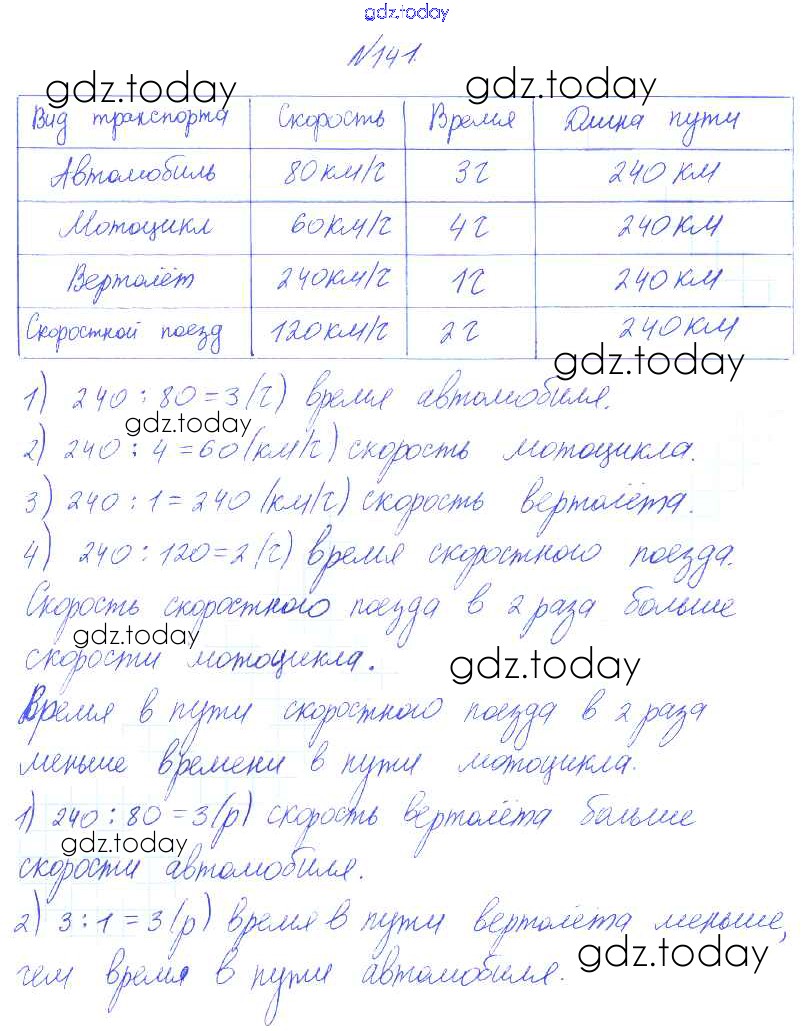 gdz.today
№141.
gdz.today gdz.today
Вид транспорта Скорость Время Длина пути
Автомобиль 80км/ч 3ч 240 км
Мотоцикл 60км/ч 4ч 240км
Вертолёт 240км/ч 1ч 240км
Скоростной поезд 120км/ч 2ч 240км
gdz.today
1) 240 : 80 = 3 (ч) время автомобиля.
gdz.today
2) 240 : 4 = 60 (км/ч) скорость мотоцикла.
3) 240 : 1 = 240 (км/ч) скорость вертолёта.
4) 240 : 120 = 2 (ч) время скоростного поезда.
Скорость скоростного поезда в 2 раза больше
gdz.today
скорости мотоцикла.
gdz.today
Время в пути скоростного поезда в 2 раза
меньше времени в пути мотоцикла.
1) 240 : 80 = 3 (р) скорость вертолёта больше
gdz.today
скорости автомобиля.
2) 3 : 1 = 3 (р) время в пути вертолёта меньше,
gdz.today
чем время в пути автомобиля.